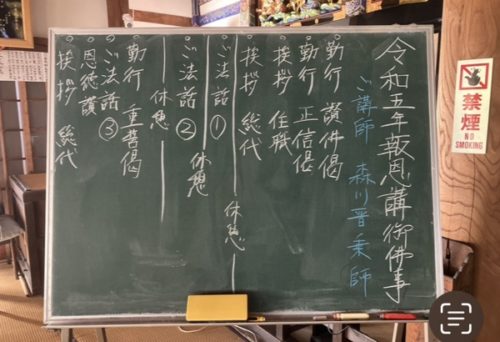 令和五年報恩講御佛事
ご講師 森川晋乗師
・勤行 讃佛偈
・勤行 正信偈
・挨拶 住職
・挨拶 総代
休憩
・ご法話①
休憩
・ご法話②
休憩
・勤行 重誓偈
・ご法話③
・恩徳讃
・挨拶 総代
禁煙
NO
SMOKING